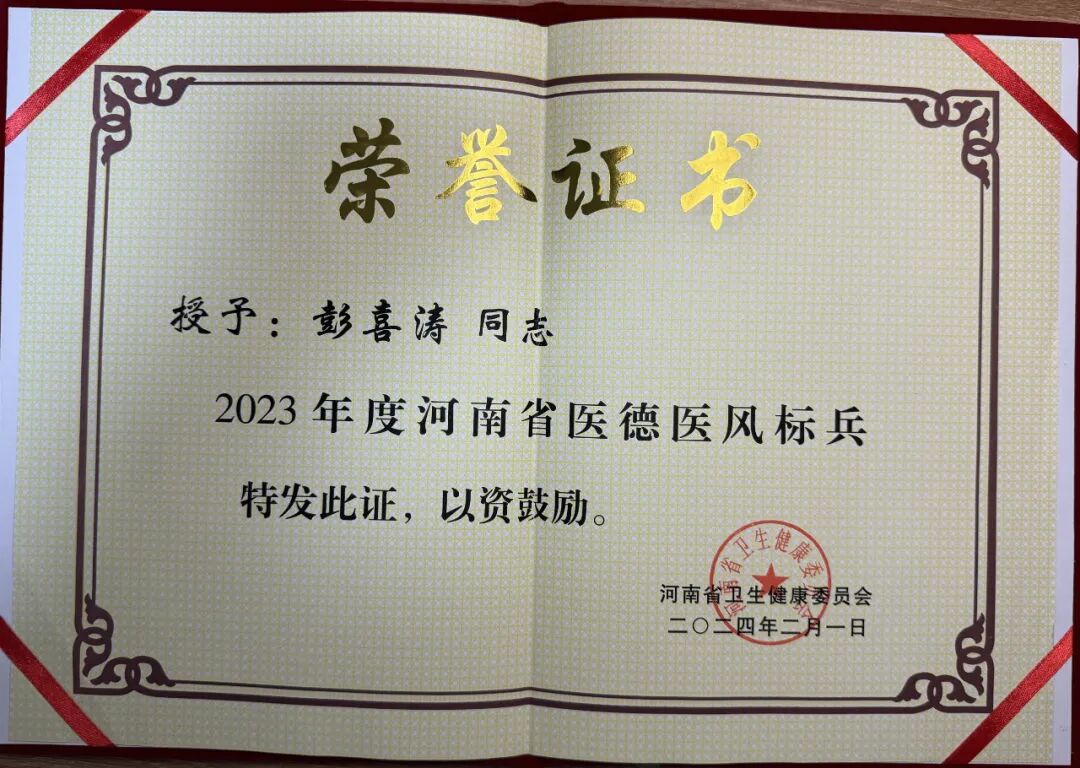 荣誉证书
授予：彭喜涛 同志
2023年度河南省医德医风标兵
特发此证，以资鼓励。
河南省卫生健康委员会
河南省卫生健康委员会
二〇二四年二月一日